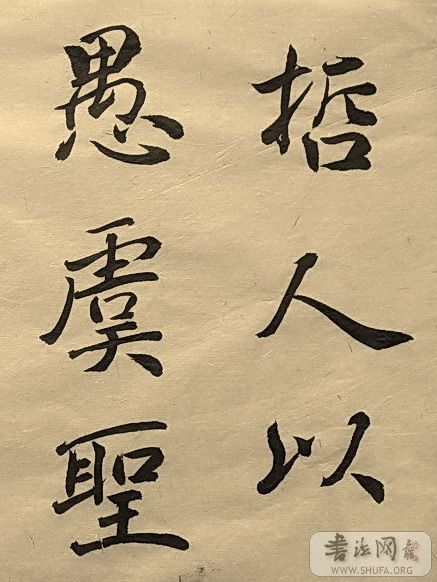 哲人以
愚虞聖
书法网
WWW.SHUFA.ORG